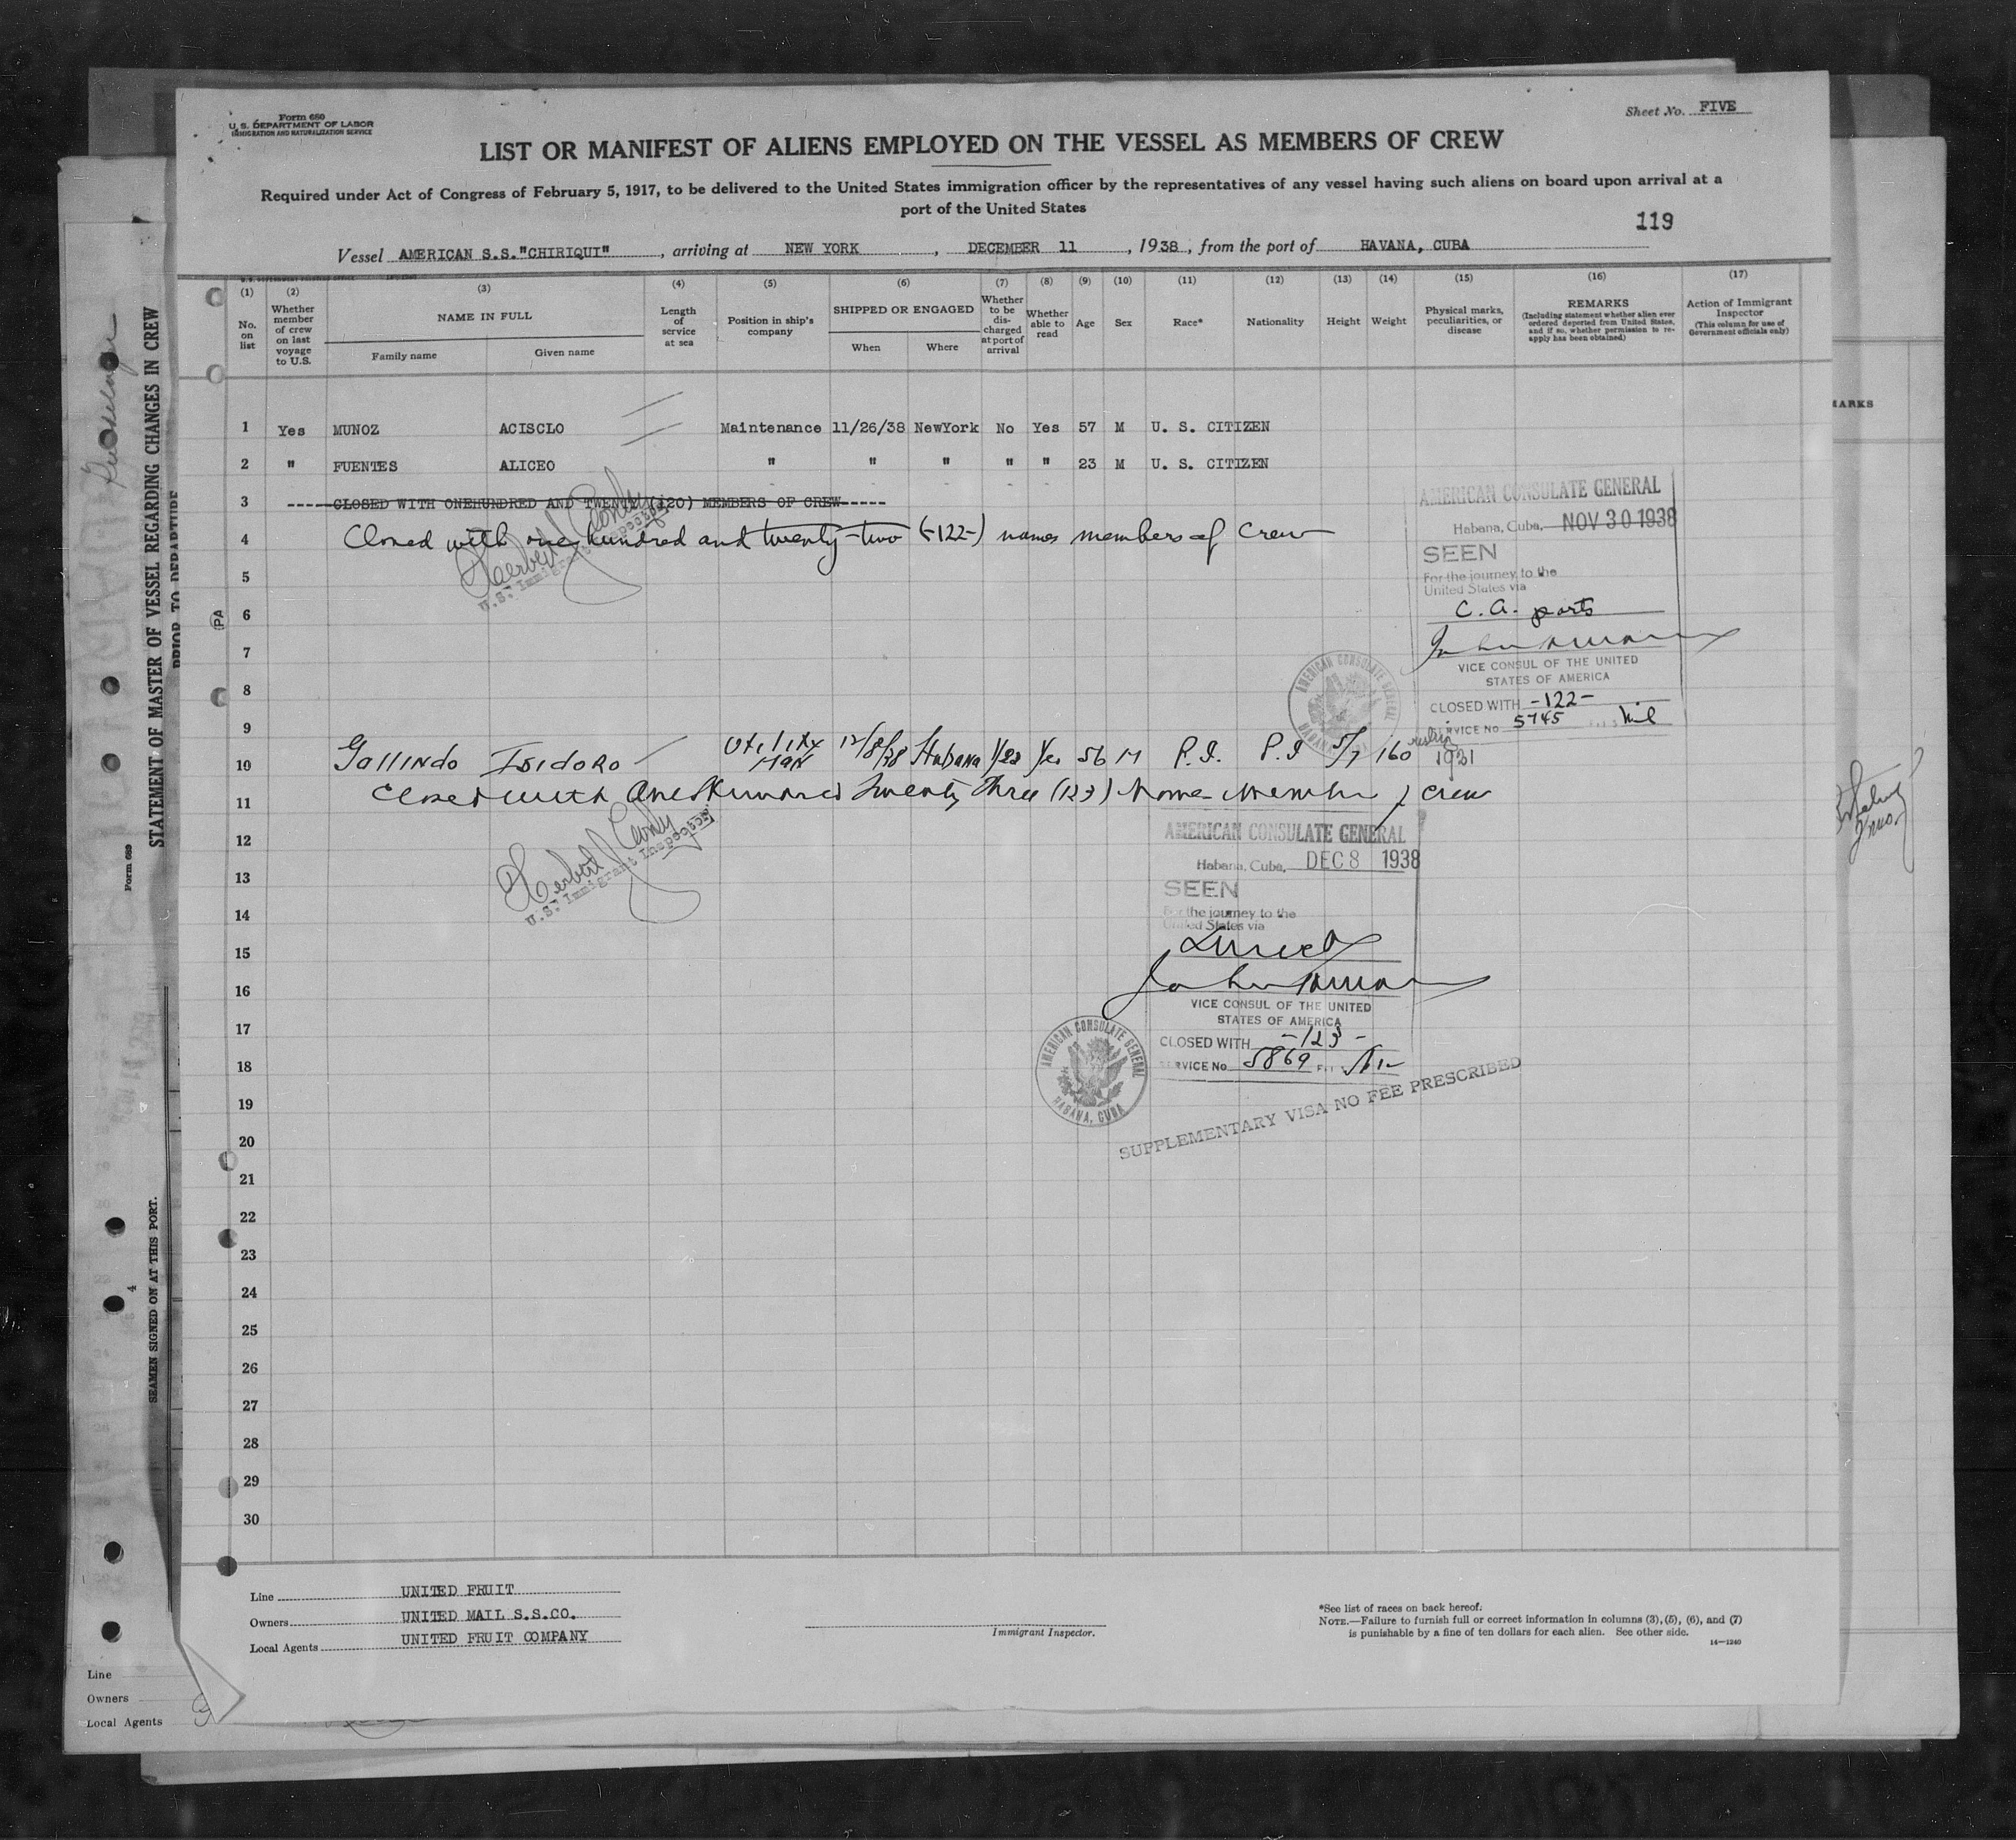 Form 680
U. S. DEPARTMENT OF LABOR
IMMIGRATION AND NATURALIZATION SERVICE
Sheet No. FIVE
LIST OR MANIFEST OF ALIENS EMPLOYED ON THE VESSEL AS MEMBERS OF CREW
Required under Act of Congress of February 5, 1917, to be delivered to the United States immigration officer by the representatives of any vessel having such aliens on board upon arrival at a
port of the United States
119
Vessel AMERICAN S.S."CHIRIQUI", arriving at NEW YORK, DECEMBER 11, 1938, from the port of HAVANA, CUBA
(1) No. on list
(2) Whether member of crew on last voyage to U.S.
(3) NAME IN FULL Family name Given name
(4) Length of service at sea
(5) Position in ship's company
(6) SHIPPED OR ENGAGED When Where
(7) Whether to be discharged at port of arrival
(8) Whether able to read
(9) Age
(10) Sex
(11) Race*
(12) Nationality
(13) Height
(14) Weight
(15) Physical marks, peculiarities, or disease
(16) REMARKS (Including statement whether alien ever ordered deported from United States, and if so, whether permission to reapply has been obtained)
(17) Action of Immigrant Inspector (This column for use of Government officials only)
1 Yes MUNOZ ACISCLO Maintenance 11/26/38 NewYork No Yes 57 M U. S. CITIZEN
2 " FUENTES ALICEO " " " " " 23 M U. S. CITIZEN
3 ----CLOSED WITH ONEHUNDRED AND TWENTY (120) MEMBERS OF CREW-----
4 Closed with one hundred and twenty-two (-122-) names members of crew
U.S. Immigrant Inspector
AMERICAN CONSULATE GENERAL
Habana, Cuba, NOV 30 1938
SEEN
For the journey to the
United States via
C. A. ports
VICE CONSUL OF THE UNITED
STATES OF AMERICA
CLOSED WITH -122-
SERVICE No. 5745 Nil
AMERICAN CONSULATE GENERAL
HABANA, CUBA
5
6
7
8
9
10 Gallindo Isidoro Utility Man 12/8/38 Habana Yes Yes 56 M P.I. P.I 5/7 160 1921
11 Closed with One Hundred Twenty Three (123) Names Members of crew
U.S. Immigrant Inspector
AMERICAN CONSULATE GENERAL
Habana, Cuba, DEC 8 1938
SEEN
For the journey to the
United States via
Direct
VICE CONSUL OF THE UNITED
STATES OF AMERICA
CLOSED WITH -123-
SERVICE No. 5869
AMERICAN CONSULATE GENERAL
HABANA, CUBA
SUPPLEMENTARY VISA NO FEE PRESCRIBED
12
13
14
15
16
17
18
19
20
21
22
23
24
25
26
27
28
29
30
Line UNITED FRUIT
Owners UNITED MAIL S.S.CO.
Local Agents UNITED FRUIT COMPANY
Immigrant Inspector.
*See list of races on back hereof.
NOTE.—Failure to furnish full or correct information in columns (3), (5), (6), and (7)
is punishable by a fine of ten dollars for each alien. See other side.
14—1240
STATEMENT OF MASTER OF VESSEL REGARDING CHANGES IN CREW
PRIOR TO DEPARTURE
Form 689
SEAMEN SIGNED ON AT THIS PORT.
4
Line
Owners
Local Agents
MARKS